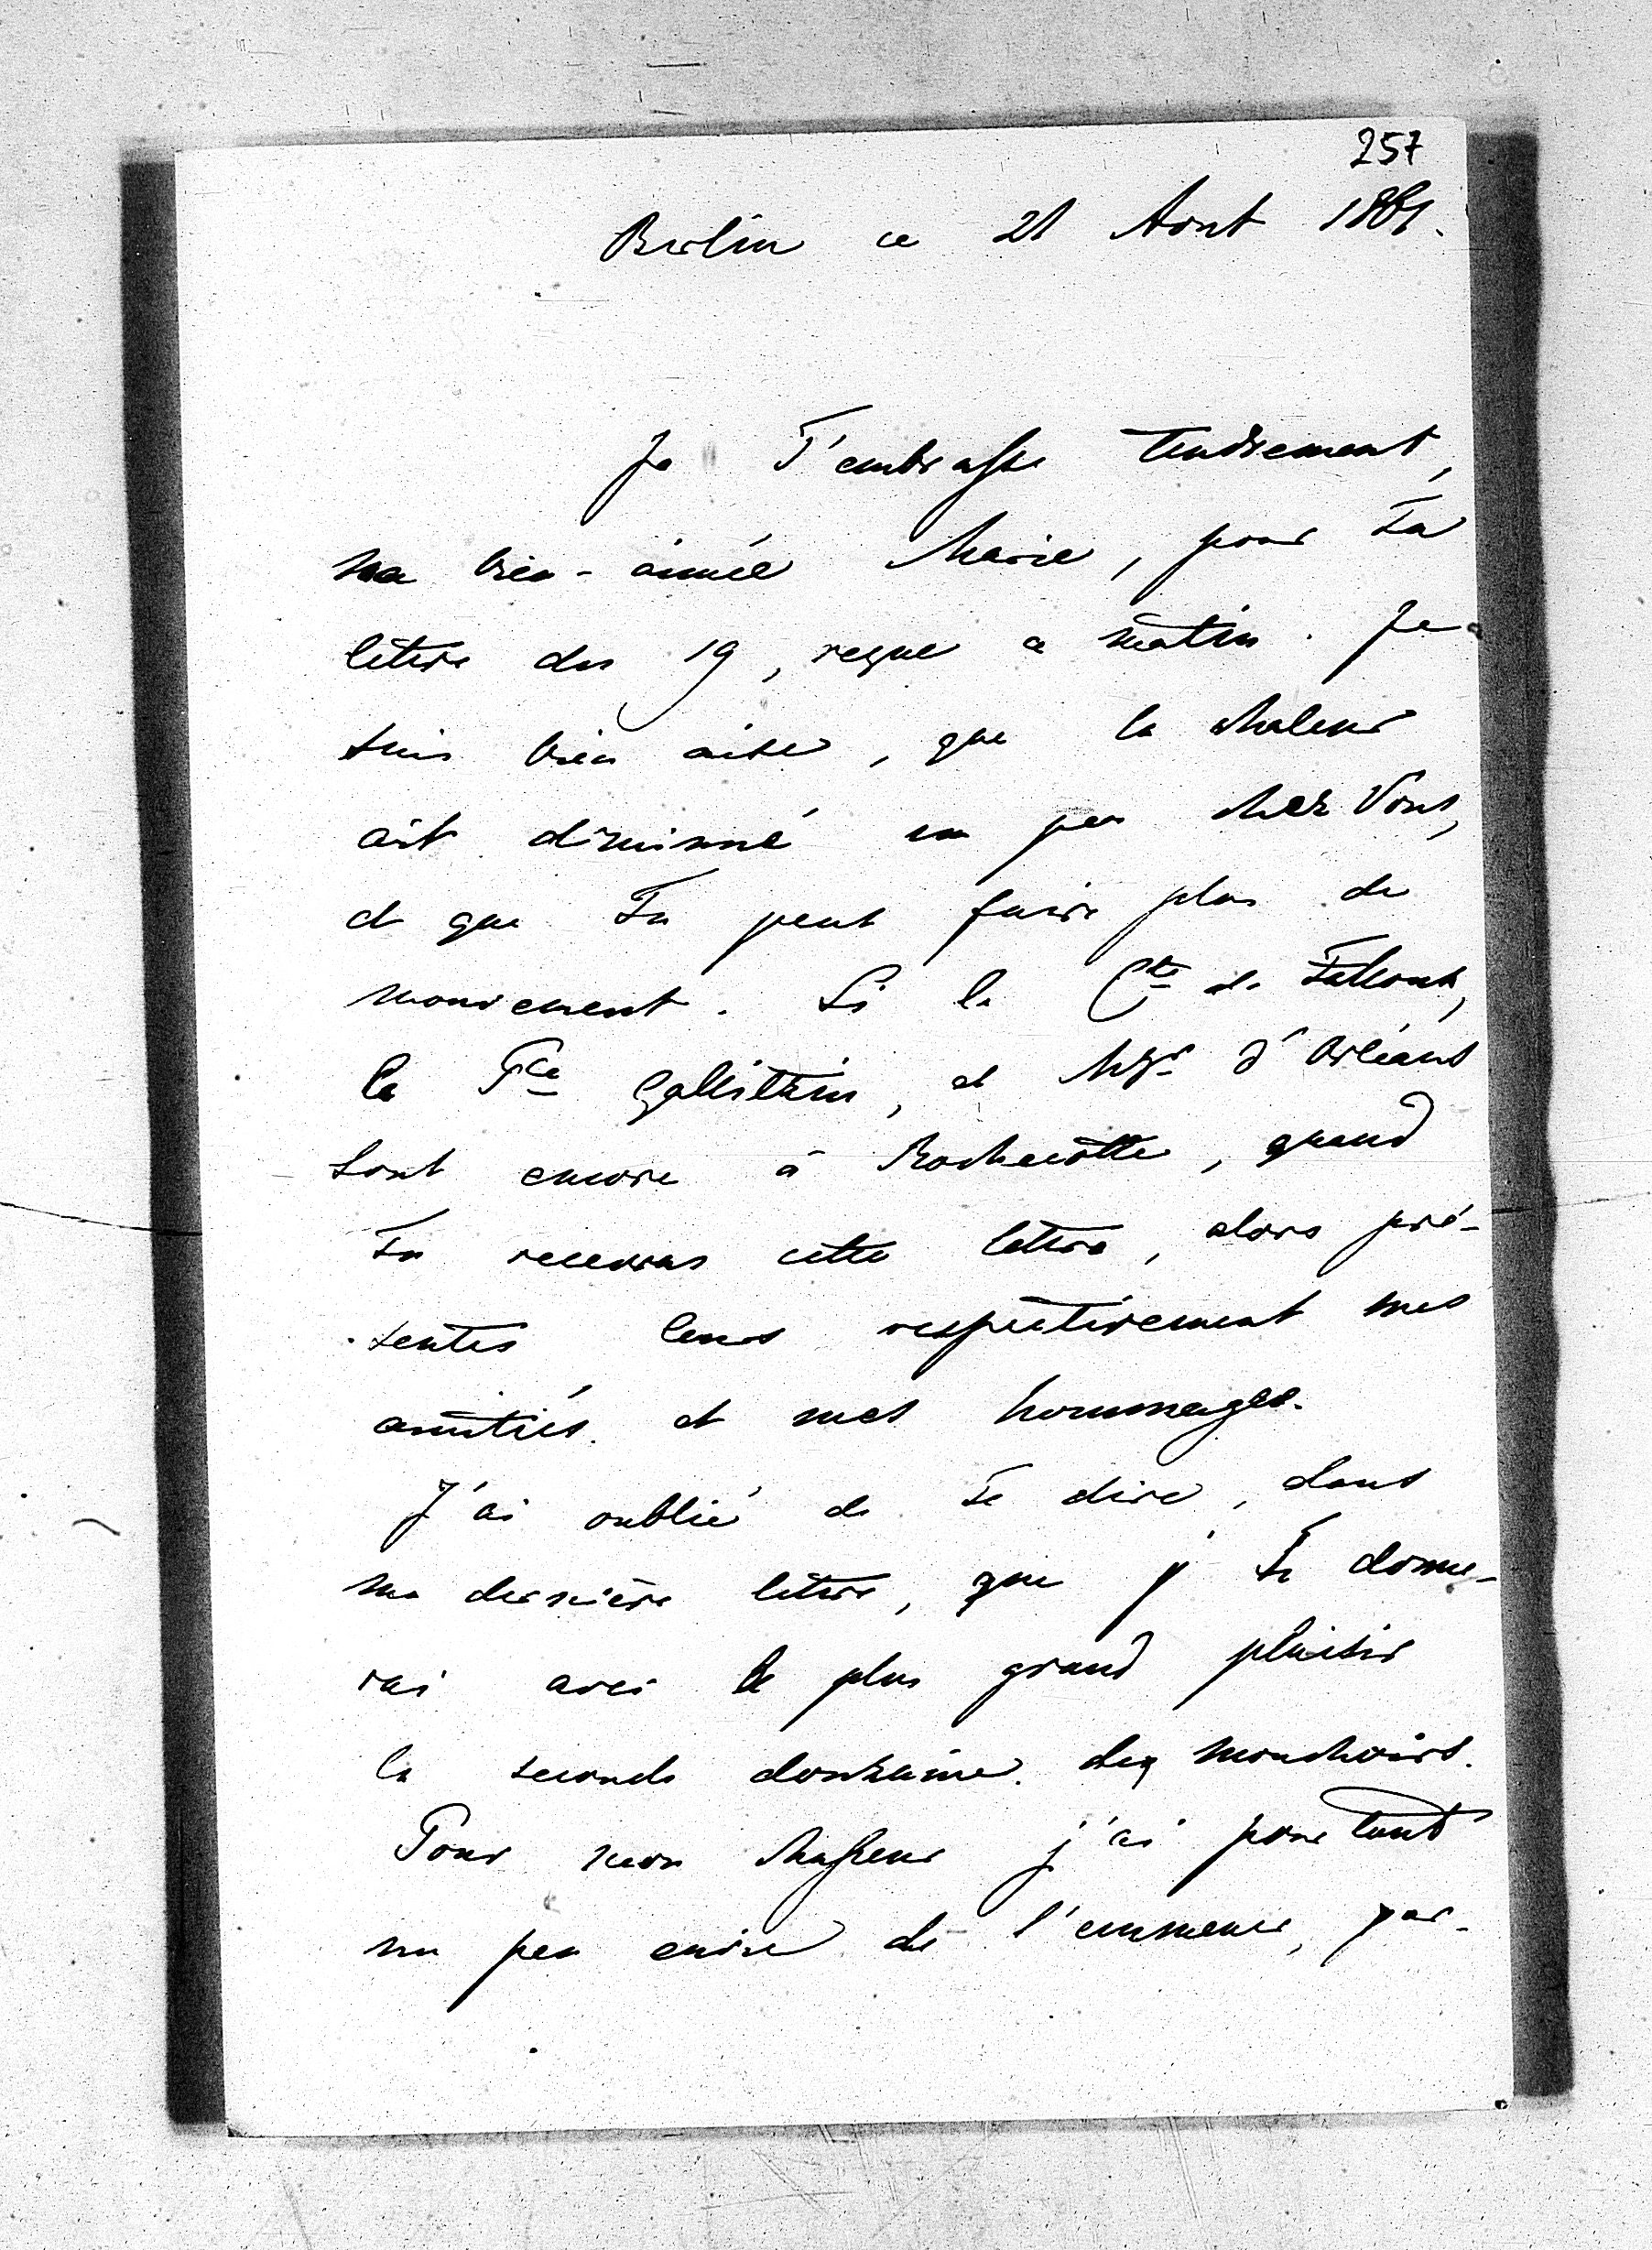 257
Berlin ce 21 Aout 1861.
Je T'embrasse tendrement,
ma bien-aimée Marie, pour Ta
lettre du 19, reçue ce matin. Je
suis bien aise, que la chaleur
ait diminué un peu chez Vous,
et que Tu peut faire plus de
mouvement. Si le Cte de Falloux,
la Pce Gallitzin, et Mgr d'Orléans
sont encore à Rochecotte, quand
Tu recevras cette lettre, alors pré-
sentes leurs respectivement mes
amitiés et mes hommages.
J'ai oublié de Te dire, dans
ma dernière lettre, que j Te donne-
rai avec le plus grand plaisir
la seconde douzaine des mouchoirs.
Pour mon chasseur j'ai pourtant
un peu envie de l'emmener, par-